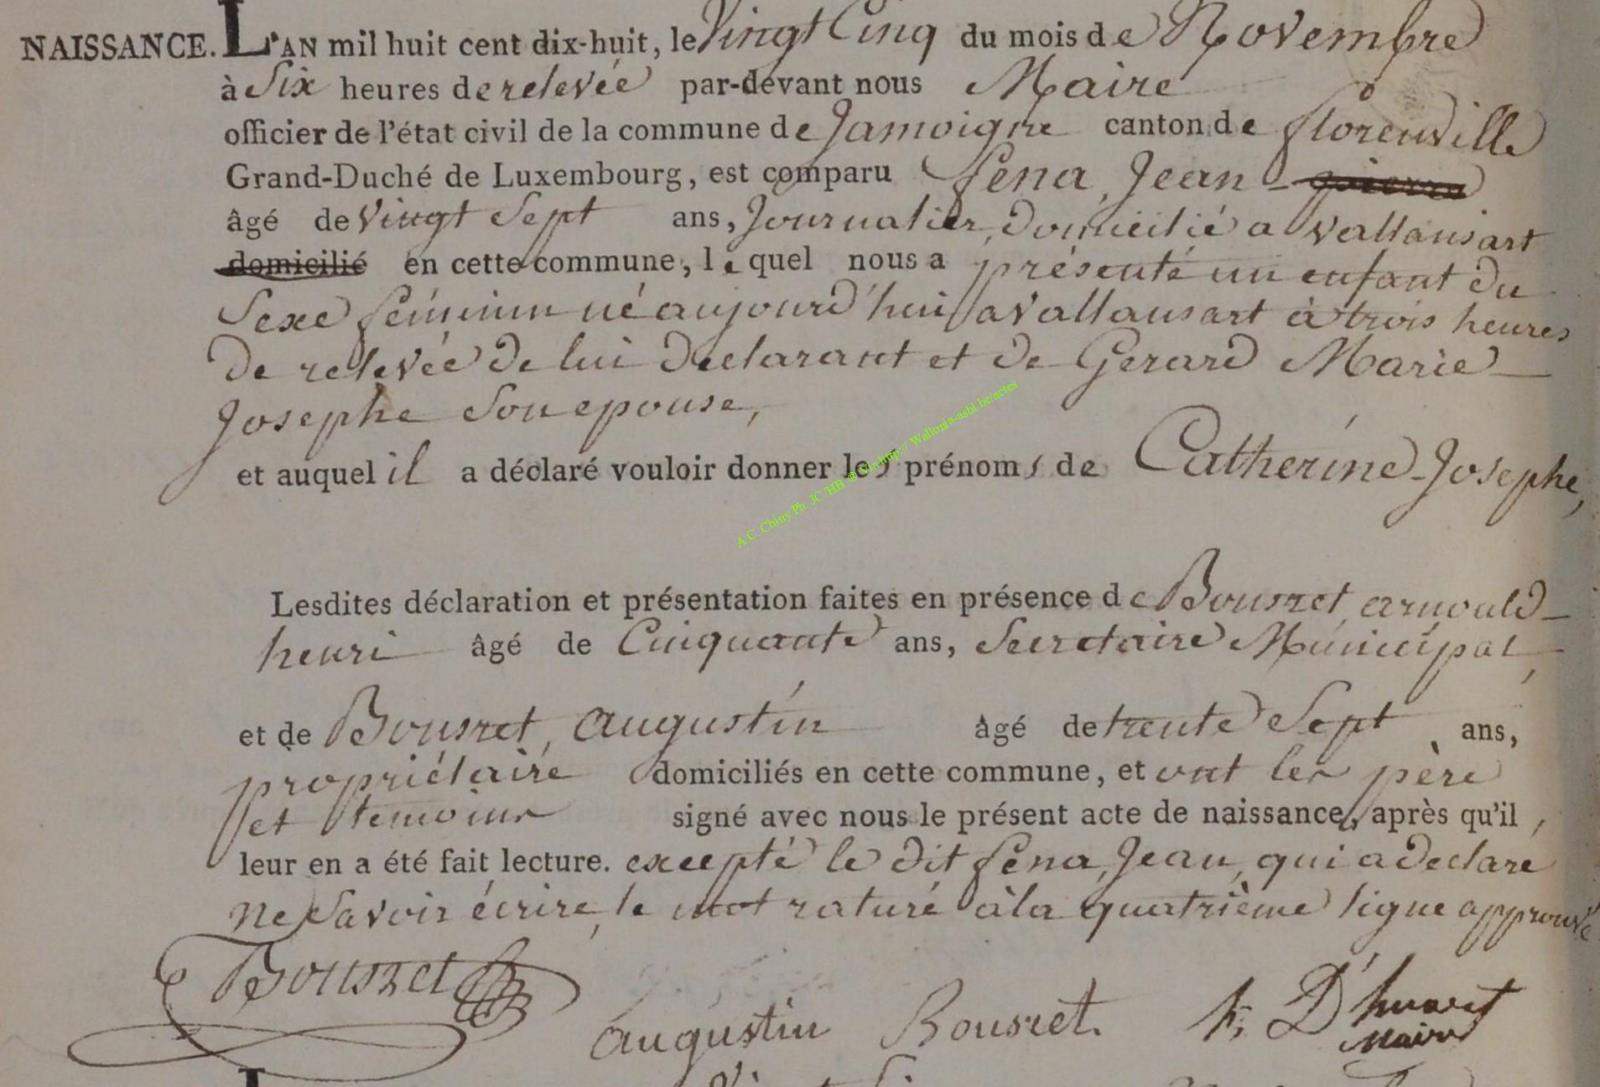 NAISSANCE. L'AN mil huit cent dix-huit, le Vingt Cinq du mois de Novembre
à Six heures de relevée par-devant nous Maire
officier de l'état civil de la commune de Jamoigne canton de florenville
Grand-Duché de Luxembourg, est comparu féna, Jean - pierre
âgé de Vingt Sept ans, Journalier, domicilié a Vallansart
domicilié en cette commune, lequel nous a présenté un enfant du
Sexe féminin né aujourd'hui a Vallansart à trois heures
de relevée de lui declarant et de Gerard Marie
Josephe Son epouse,
et auquel il a déclaré vouloir donner les prénoms de Catherine-Josephe,
Lesdites déclaration et présentation faites en présence de Bousret, arnould
henri âgé de Cinquante ans, Secretaire Municipal,
et de Bousret, augustin âgé de trente Sept ans,
propriétaire domiciliés en cette commune, et ont les père
et temoins signé avec nous le présent acte de naissance, après qu'il
leur en a été fait lecture. excepté le dit féna, Jean, qui a declaré
ne Savoir écrire, le mot raturé à la quatrième ligne approuvé
Bousret
augustin Bousret. D'huart
Maire